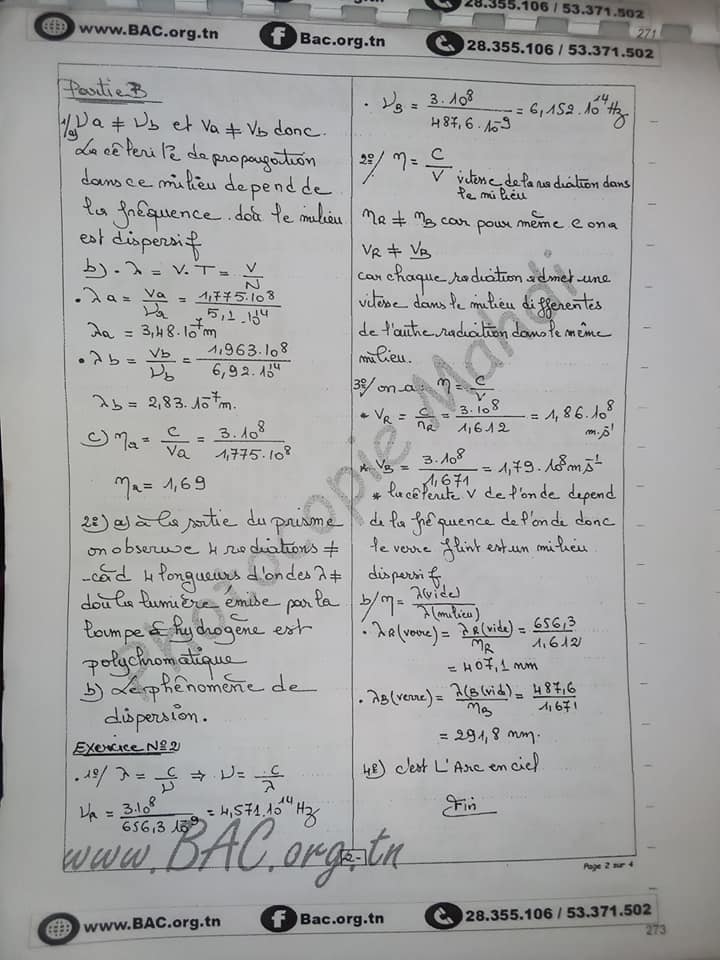 28.355.106 / 53.371.502
www.BAC.org.tn
Bac.org.tn
28.355.106 / 53.371.502
271
Partie B
1/a) νa ≠ νb et Va ≠ Vb donc.
La célérité de propagation
dans ce milieu depend de
la fréquence. doù le milieu
est dispersif
b). λ = V.T = V/N
. λa = Va/νa = 1,775.10^8 / 5,1.10^14
λa = 3,48.10^-7 m
• λb = Vb/νb = 1,963.10^8 / 6,92.10^14
λb = 2,83.10^-7 m.
c) ηa = C/Va = 3.10^8 / 1,775.10^8
ηa = 1,69
2°) a) à la sortie du prisme
on observe 4 radiations ≠
-càd 4 longueurs d'ondes λ ≠
doù la lumière émise par la
lampe d'hydrogène est
polychromatique
b) Le phénomène de
dispersion.
Exercice N°2
. 1°/ λ = C/ν ⇒ ν = C/λ
νR = 3.10^8 / 656,3 10^-9 = 4,571.10^14 Hz
. νB = 3.10^8 / 487,6.10^-9 = 6,152.10^14 Hz
2°/ η = C/V vitesse de la radiation dans
le milieu
ηR ≠ ηB car pour même c on a
VR ≠ VB
car chaque radiation admet une
vitesse dans le milieu differentes
de l'autre radiation dans le même
milieu.
3°/ on a: η = C/V
* VR = C/ηR = 3.10^8 / 1,612 = 1,86.10^8
m.s^-1
* VB = 3.10^8 / 1,671 = 1,79.10^8 m s^-1
* la célérité V de l'onde depend
de la fréquence de l'onde donc
le verre flint est un milieu
dispersif
b/ η = λ(vide) / λ(milieu)
. λR(verre) = λR(vide)/ηR = 656,3 / 1,612
= 407,1 nm
. λB(verre) = λ(B(vid)/ηB = 487,6 / 1,671
= 291,8 nm.
4°) c'est L'Arc en ciel
Fin
Photocopie Mahdi
www.BAC.org.tn
-2-
Page 2 sur 4
www.BAC.org.tn
Bac.org.tn
28.355.106 / 53.371.502
273